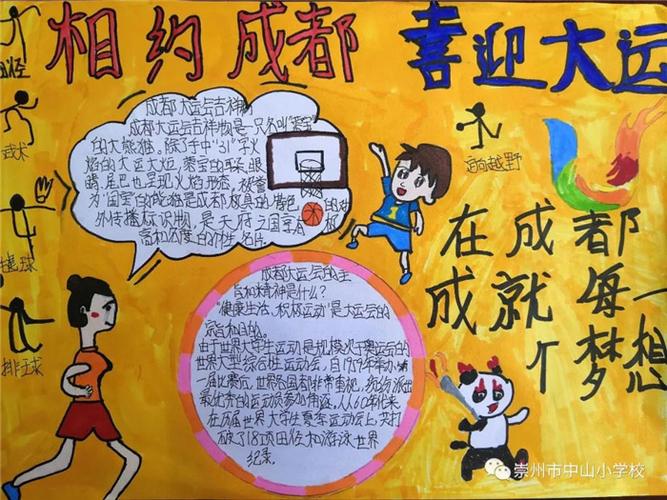 相约成都 喜迎大运
田径
武术
排球
定向越野
成都大运会吉祥物
成都大运会吉祥物是一只名叫"蓉宝"
的大熊猫。除了手中"31"字火
焰的大运火炬,蓉宝的耳朵、眼
睛、尾巴也呈现火焰形态。被誉
为"国宝"的熊猫是成都极具特色的对
外传播标识物,是天府之国享有
高和名度的个性名片。
成都大运会的主
旨和精神是什么?
"健康生活、积极运动"是大运会的
宗旨和目的。
由于世界大学生运动是规模次于奥运会的
世界大型综合性运动会,自1959年举办第一
届比赛后,世界各国都非常重视,纷纷派出
最优秀的运动员参加角逐,从60年代来
在历届世界大学生夏季运动会上,共打
破了18项田径和游泳世界
纪录。
在成都
成就每一
个梦想
崇州市中山小学校